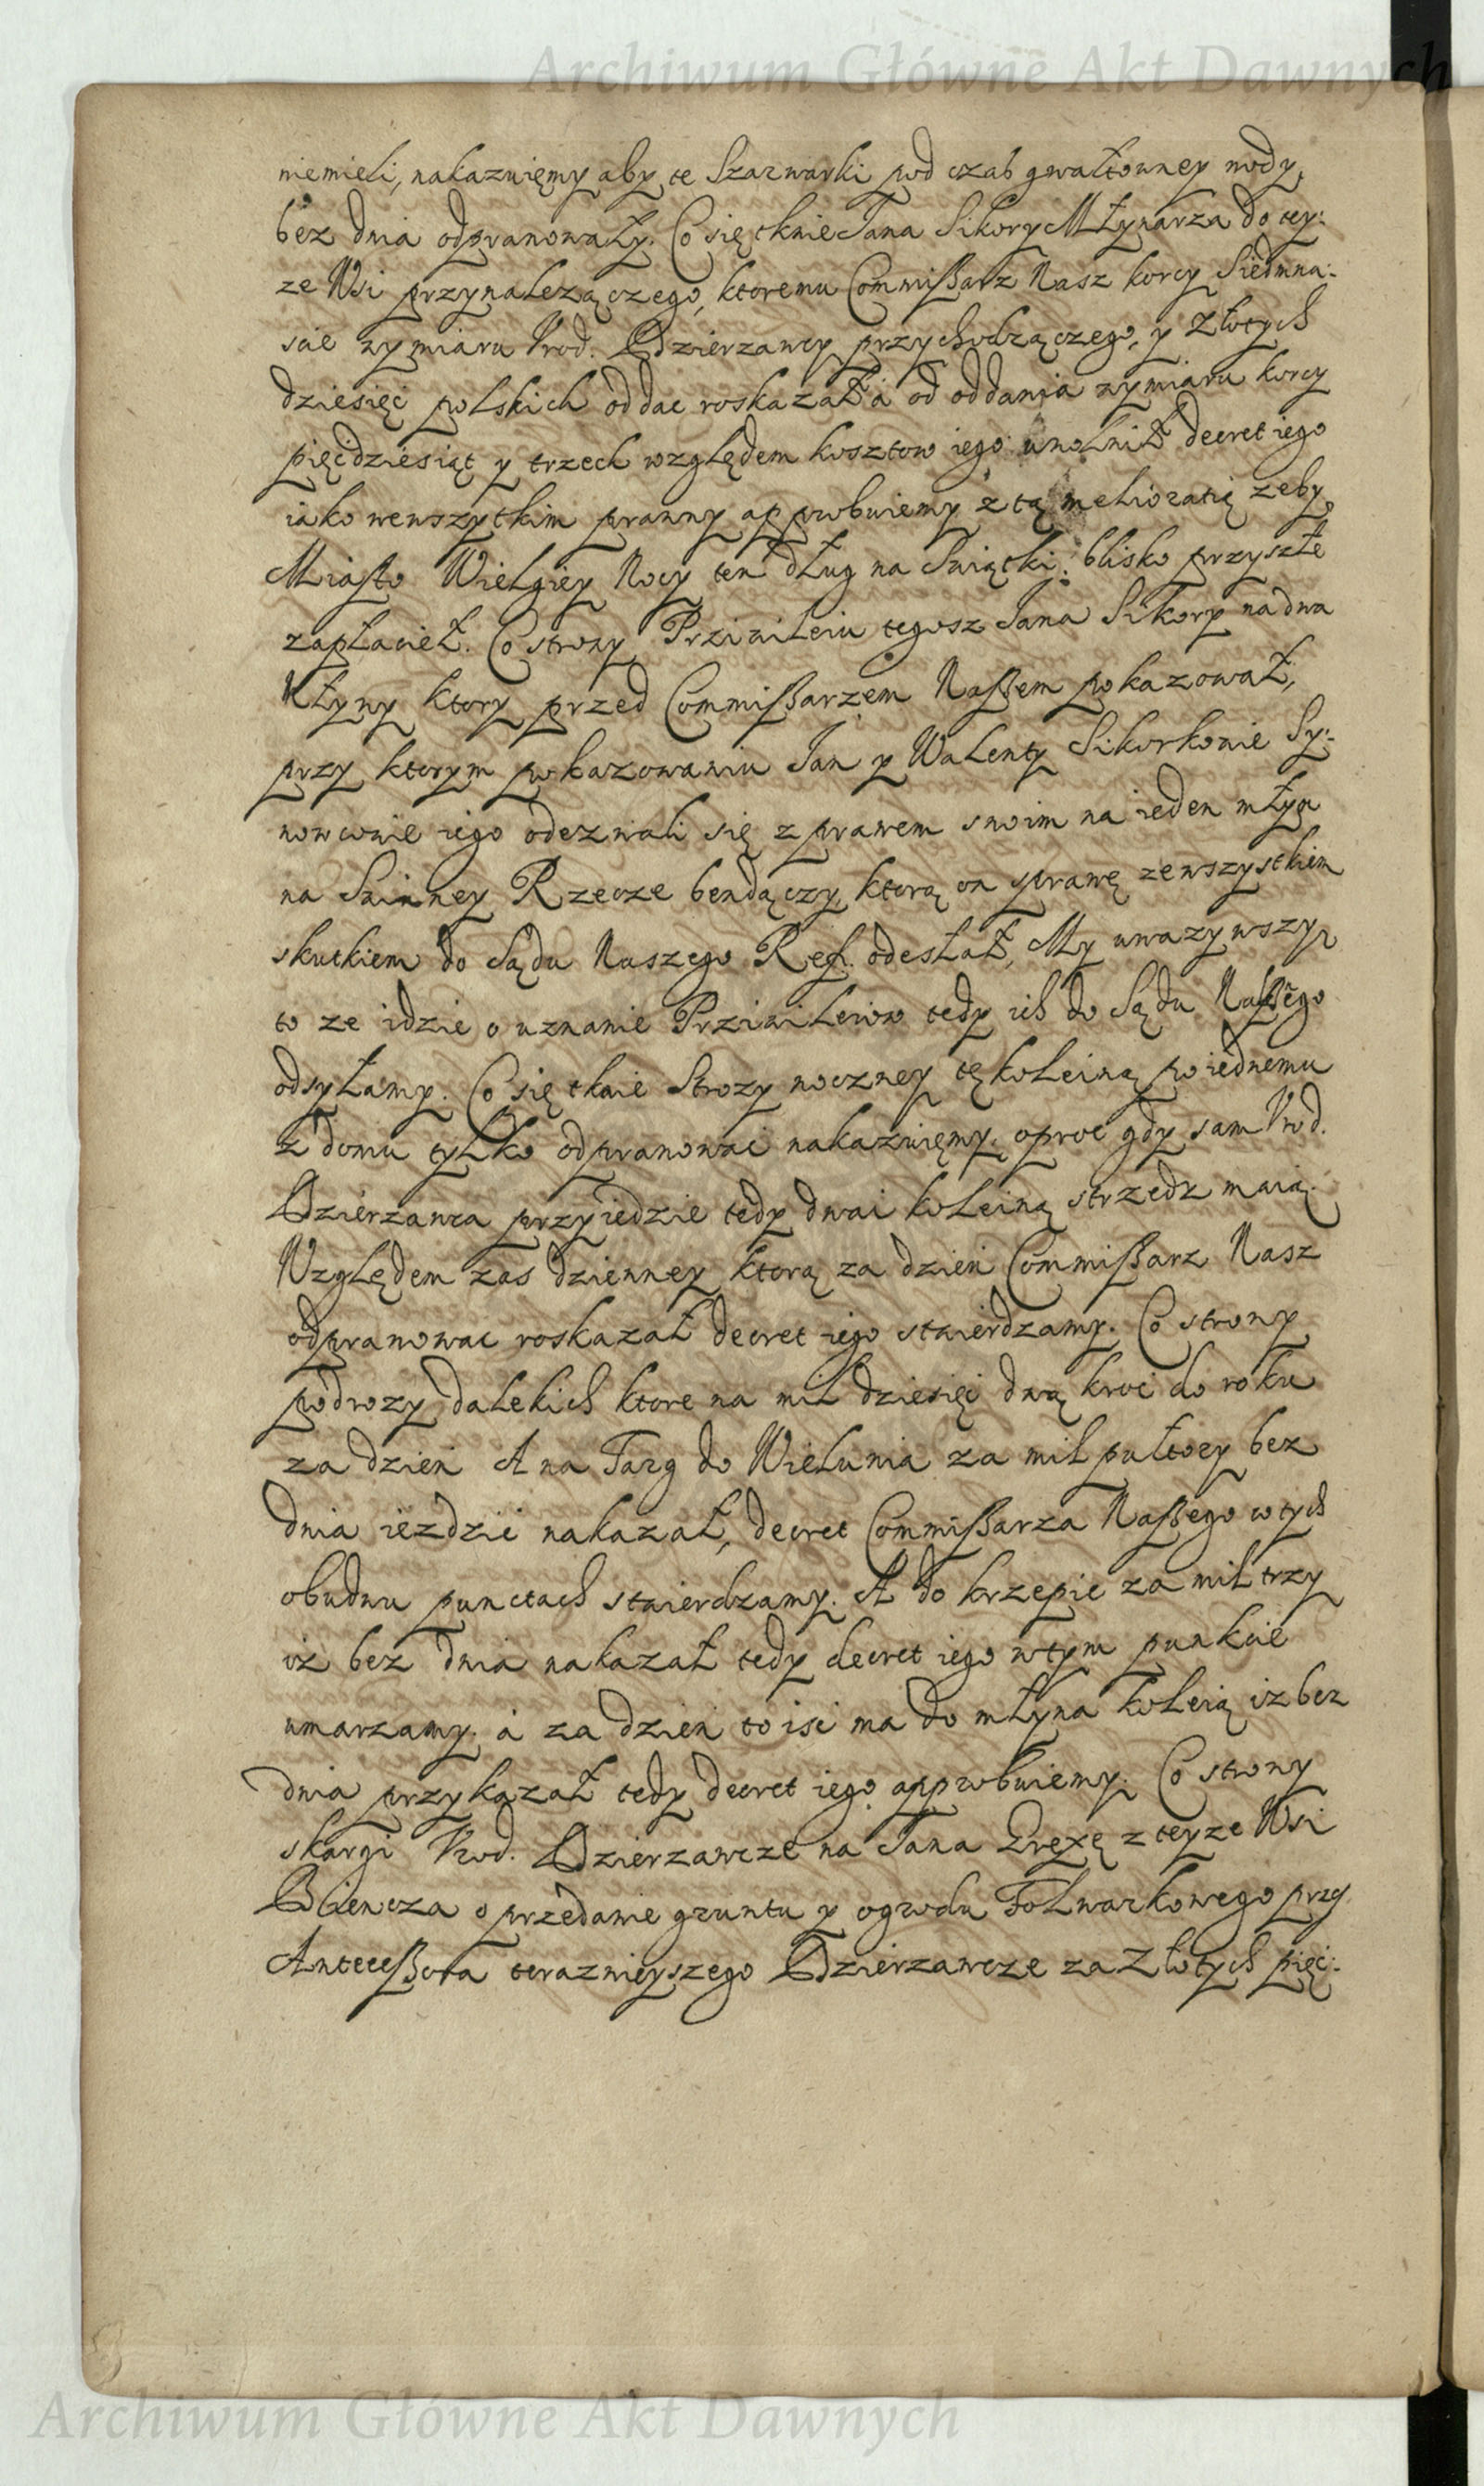 Archiwum Główne Akt Dawnych
niemieli, nakazuięmy aby te Szarwarki pod czas gwałtowney wody,
bez dnia odprawowały. Co się tknie Jana Sikory Młynarza do tey:
ze Wsi przynalezączego, ktoremu Commißarz Nasz korcy Siedmna:
scie wymiaru Urod. Dzierzawcy przychodzączego, y Złotych
dziesięć polskich oddac roskazał á od oddania wymiaru korcy
pięćdziesiąt y trzech względem kosztow iego uwolnił decret iego
iako wewszytkim prawny approbuiemy z tą melioratią zeby
Miasto Wielgiey Nocy ten dług na Swiątki blisko przyszłe
zapłacieł. Co strony Prziwileiu tegosz Jana Sikory na dwa
Młyny ktory przed Commißarzem Naßem pokazował,
przy ktorym pokazowaniu Jan y Walenty Sikorkowie Sy:
nowcowie iego odezwali się z prawem swoim na ieden młyn
na Swinney Rzecze bendączy, ktorą on sprawę zewszystkiem
skutkiem do Sądu Naszego Ref. odesłał, My uwazywszy
to ze idzie o uznanie Prziwileiow tedy ich do Sądu Naßego
odsyłamy. Co się tknie Strozy noczney tę koleiną po iednemu
z domu tylko odprawowac nakazuięmy, oproc gdy sam Urod.
Dzierzawca przyiedzie tedy dwai koleiną strzedz maią.
Względem zas dzienney ktorą za dzien Commißarz Nasz
odprawowac roskazał decret iego stwierdzamy. Co strony
podrozy dalekich ktore na mil dziesięć dwą kroc do roku
za dzien A na Targ do Wielunia za mil pułtory bez
dnia iezdzic nakazał, decret Commißarza Naßego w tych
obudwu punctach stwierdzamy. A do krzepic za mil trzy
iz bez dnia nakazał tedy decret iego w tym punkcie
umarzamy, á za dzien to isc ma do młyna koleią iz bez
dnia przykazał tedy decret iego approbuiemy. Co strony
skargi Urod. Dzierzawcze na Jana z teyze Wsi
o przedanie gruntu y ogrodu Folwarkowego przez
Anteceßora teraznieyszego Dzierzawcze za Złotych pięć:
Archiwum Główne Akt Dawnych